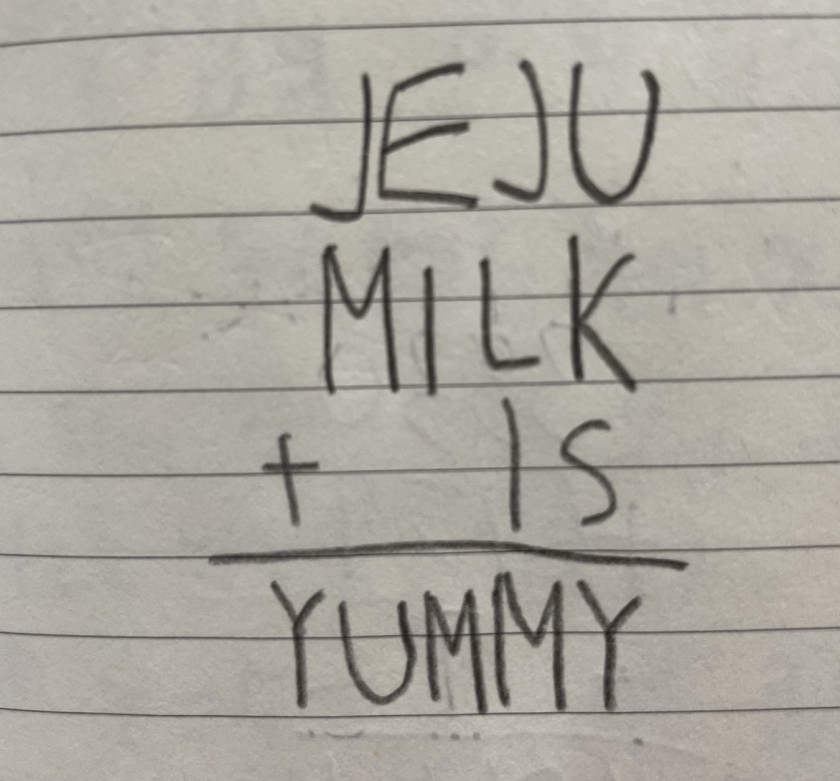 JEJU
MILK
+ IS
YUMMY